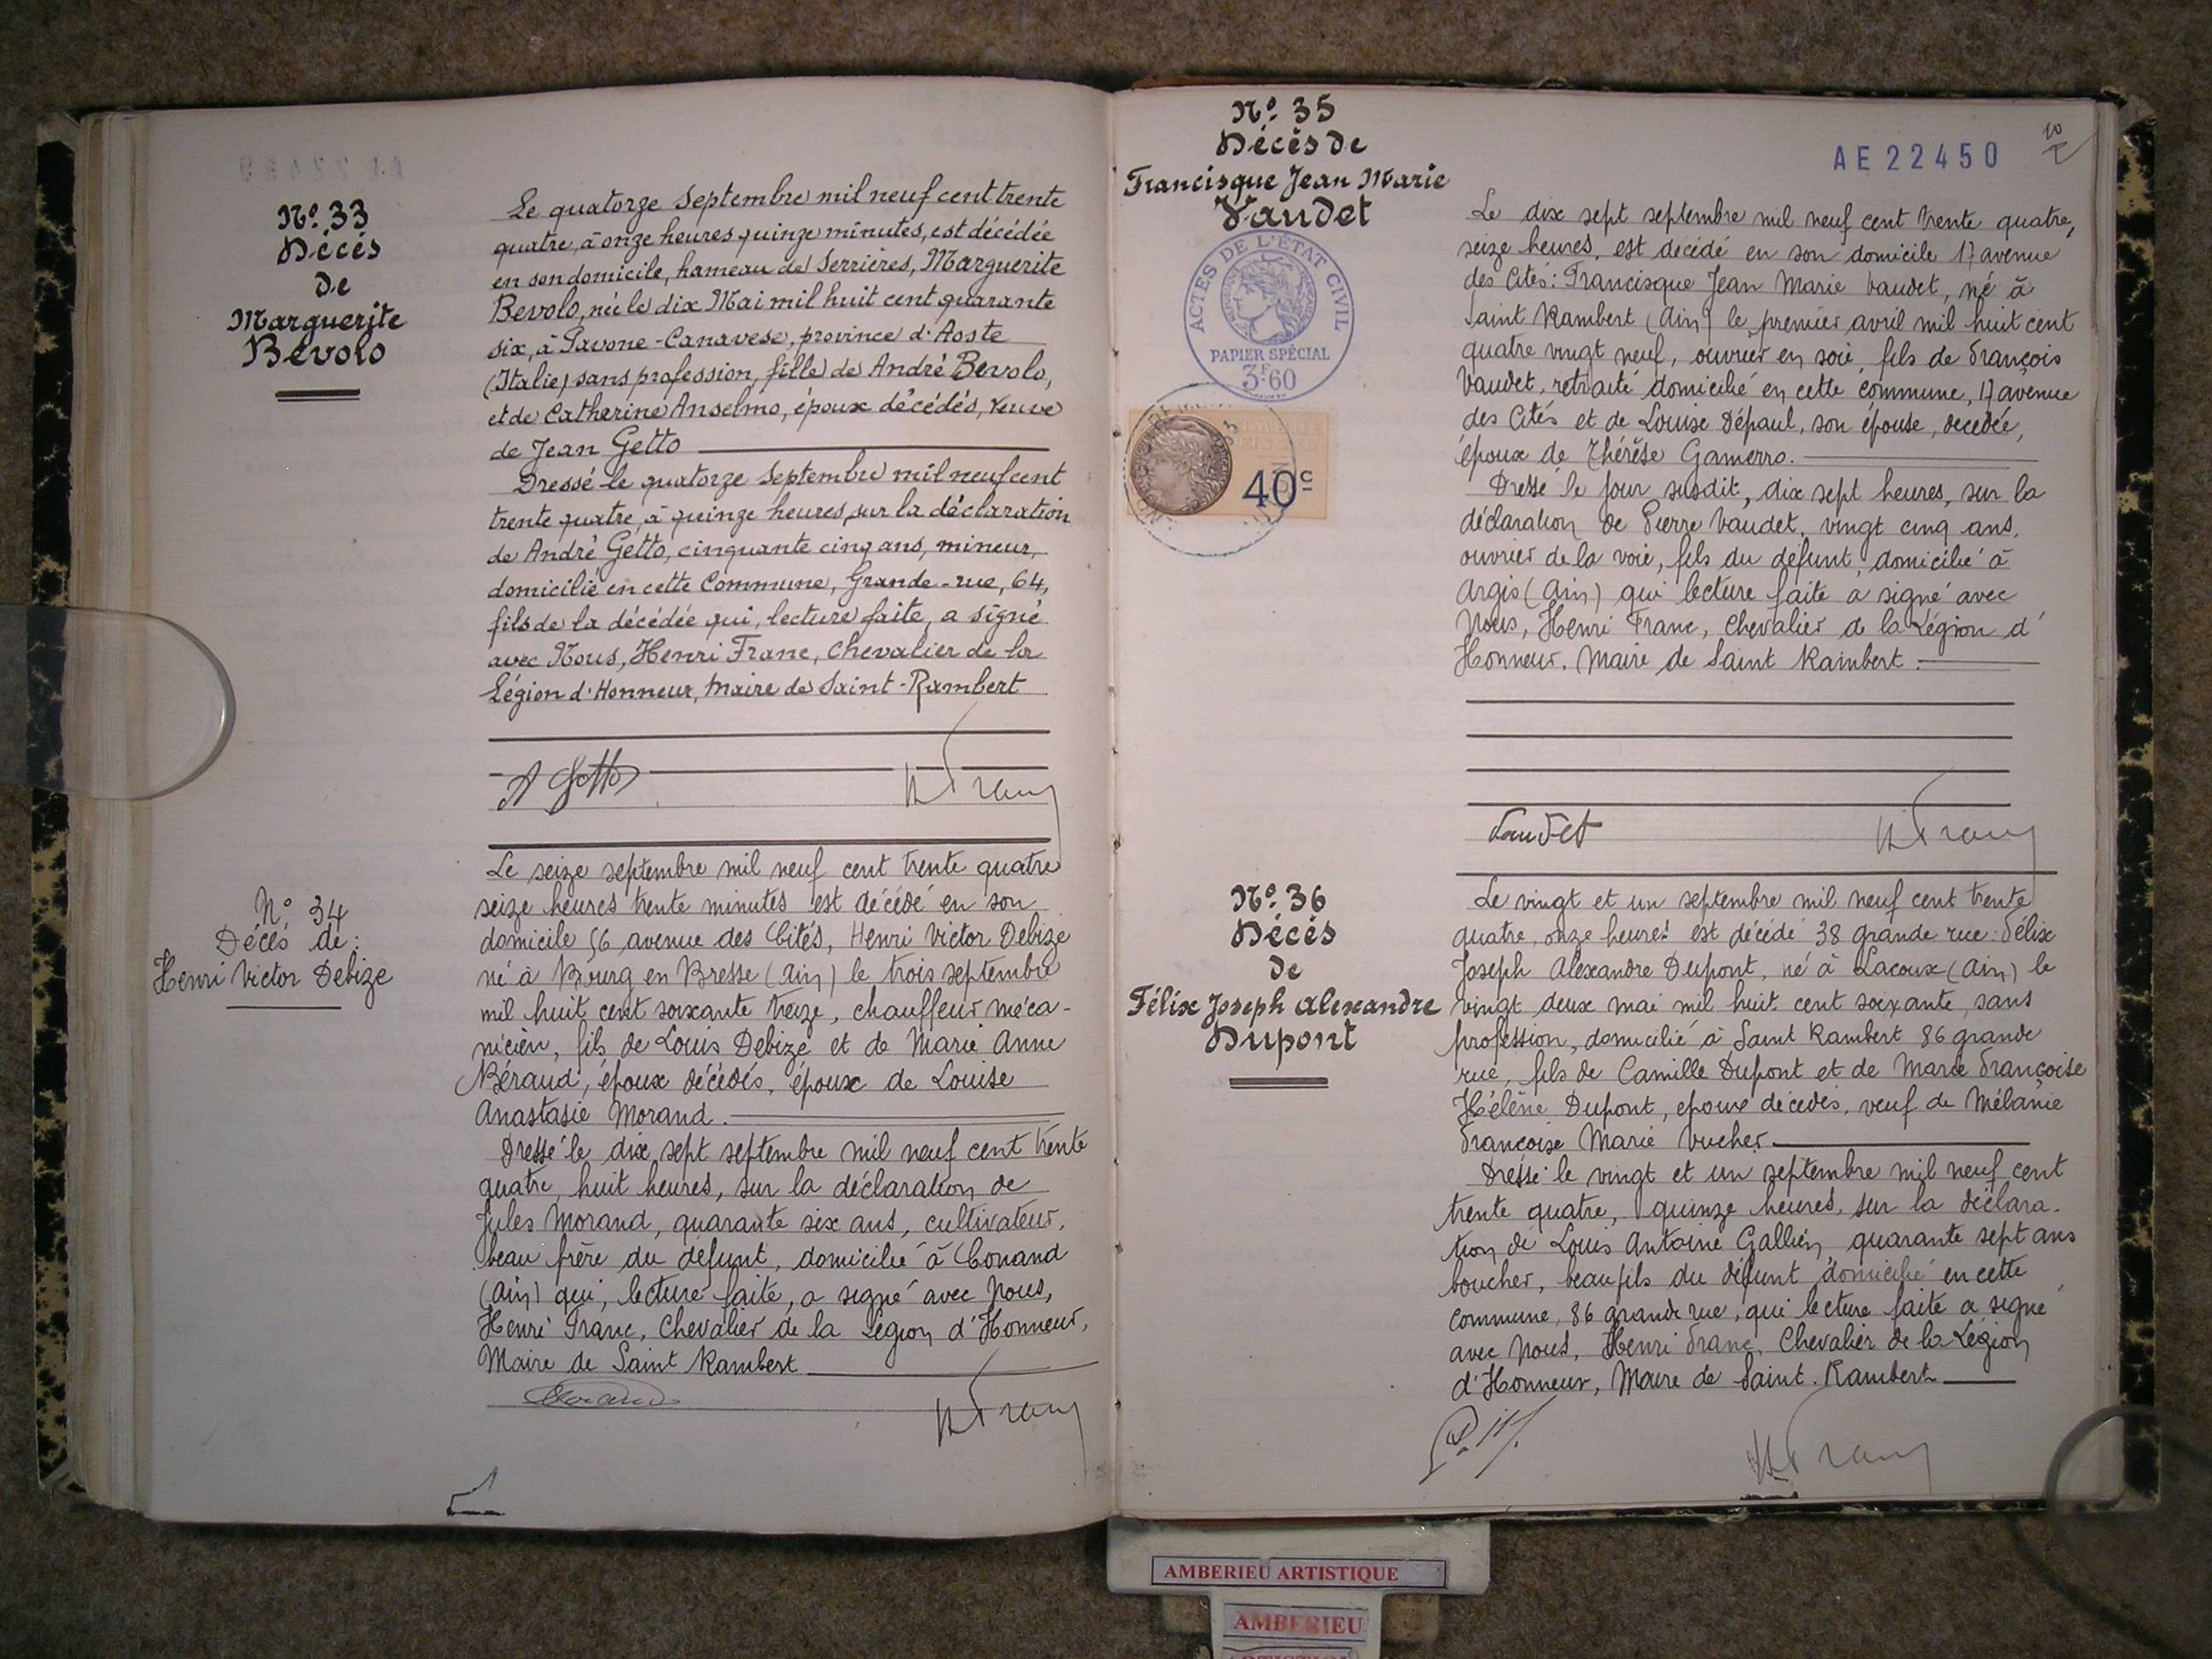 Nº 33
Décès
de
Marguerite
Bevolo
Le quatorze Septembre mil neuf cent trente
quatre, à onze heures quinze minutes, est décédée
en son domicile, hameau de Serrières, Marguerite
Bevolo, née le dix Mai mil huit cent quarante
six, à Pavone-Canavese, province d'Aoste
(Italie) sans profession, fille de André Bevolo,
et de Catherine Anselmo, époux décédés, veuve
de Jean Getto
Dressé le quatorze Septembre mil neuf cent
trente quatre, à quinze heures, sur la déclaration
de André Getto, cinquante cinq ans, mineur,
domicilié en cette Commune, Grande-rue, 64,
fils de la décédée qui, lecture faite, a signé
avec Nous, Henri Franc, Chevalier de la
Légion d'Honneur, Maire de Saint-Rambert
A Getto
H Franc
Nº 34
Décès de:
Henri Victor Debize
Le seize septembre mil neuf cent trente quatre
seize heures trente minutes est décédé en son
domicile 56 avenue des Cités, Henri Victor Debize
né à Bourg en Bresse (Ain) le trois septembre
mil huit cent soixante treize, chauffeur méca-
nicien, fils de Louis Debize et de Marie Anne
Béraud, époux décédés, époux de Louise
Anastasie Morand.
Dressé le dix sept septembre mil neuf cent trente
quatre, huit heures, sur la déclaration de
Jules Morand, quarante six ans, cultivateur,
beau frère du défunt, domicilié à Conand
(Ain) qui, lecture faite, a signé avec Nous,
Henri Franc, Chevalier de la Légion d'Honneur,
Maire de Saint Rambert
Morand
H Franc
Nº 35
Décès de
Francisque Jean Marie
Vaudet
ACTES DE L'ÉTAT CIVIL
PAPIER SPÉCIAL
3F60
40c
AE 22450
10
Le dix sept septembre mil neuf cent trente quatre,
seize heures, est décédé en son domicile 17 avenue
des Cités: Francisque Jean Marie Vaudet, né à
Saint Rambert (Ain) le premier avril mil huit cent
quatre vingt neuf, ouvrier en soie, fils de François
Vaudet, retraité domicilié en cette commune, 17 avenue
des Cités et de Louise Dépaul, son épouse, décédée,
époux de Thérèse Gamerro.
Dressé le jour susdit, dix sept heures, sur la
déclaration de Pierre Vaudet, vingt cinq ans,
ouvrier de la voie, fils du défunt, domicilié à
Argis (Ain) qui lecture faite a signé avec
Nous, Henri Franc, Chevalier de la Légion d'
Honneur, Maire de Saint Rambert.
Vaudet
H Franc
Nº 36
Décès
de
Félix Joseph Alexandre
Dupont
Le vingt et un septembre mil neuf cent trente
quatre, onze heures est décédé 38 grande rue: Félix
Joseph Alexandre Dupont, né à Lacoux (Ain) le
vingt deux mai mil huit cent soixante, sans
profession, domicilié à Saint Rambert 86 grande
rue, fils de Camille Dupont et de Marie Françoise
Hélène Dupont, époux décédés, veuf de Mélanie
Françoise Marie Vucher
Dressé le vingt et un septembre mil neuf cent
trente quatre, quinze heures, sur la déclara-
tion de Louis Antoine Gallien, quarante sept ans
boucher, beau fils du défunt domicilié en cette
commune, 86 grande rue, qui lecture faite a signé
avec Nous, Henri Franc, Chevalier de la Légion
d'Honneur, Maire de Saint. Rambert
H Franc
AMBERIEU ARTISTIQUE
AMBERIEU